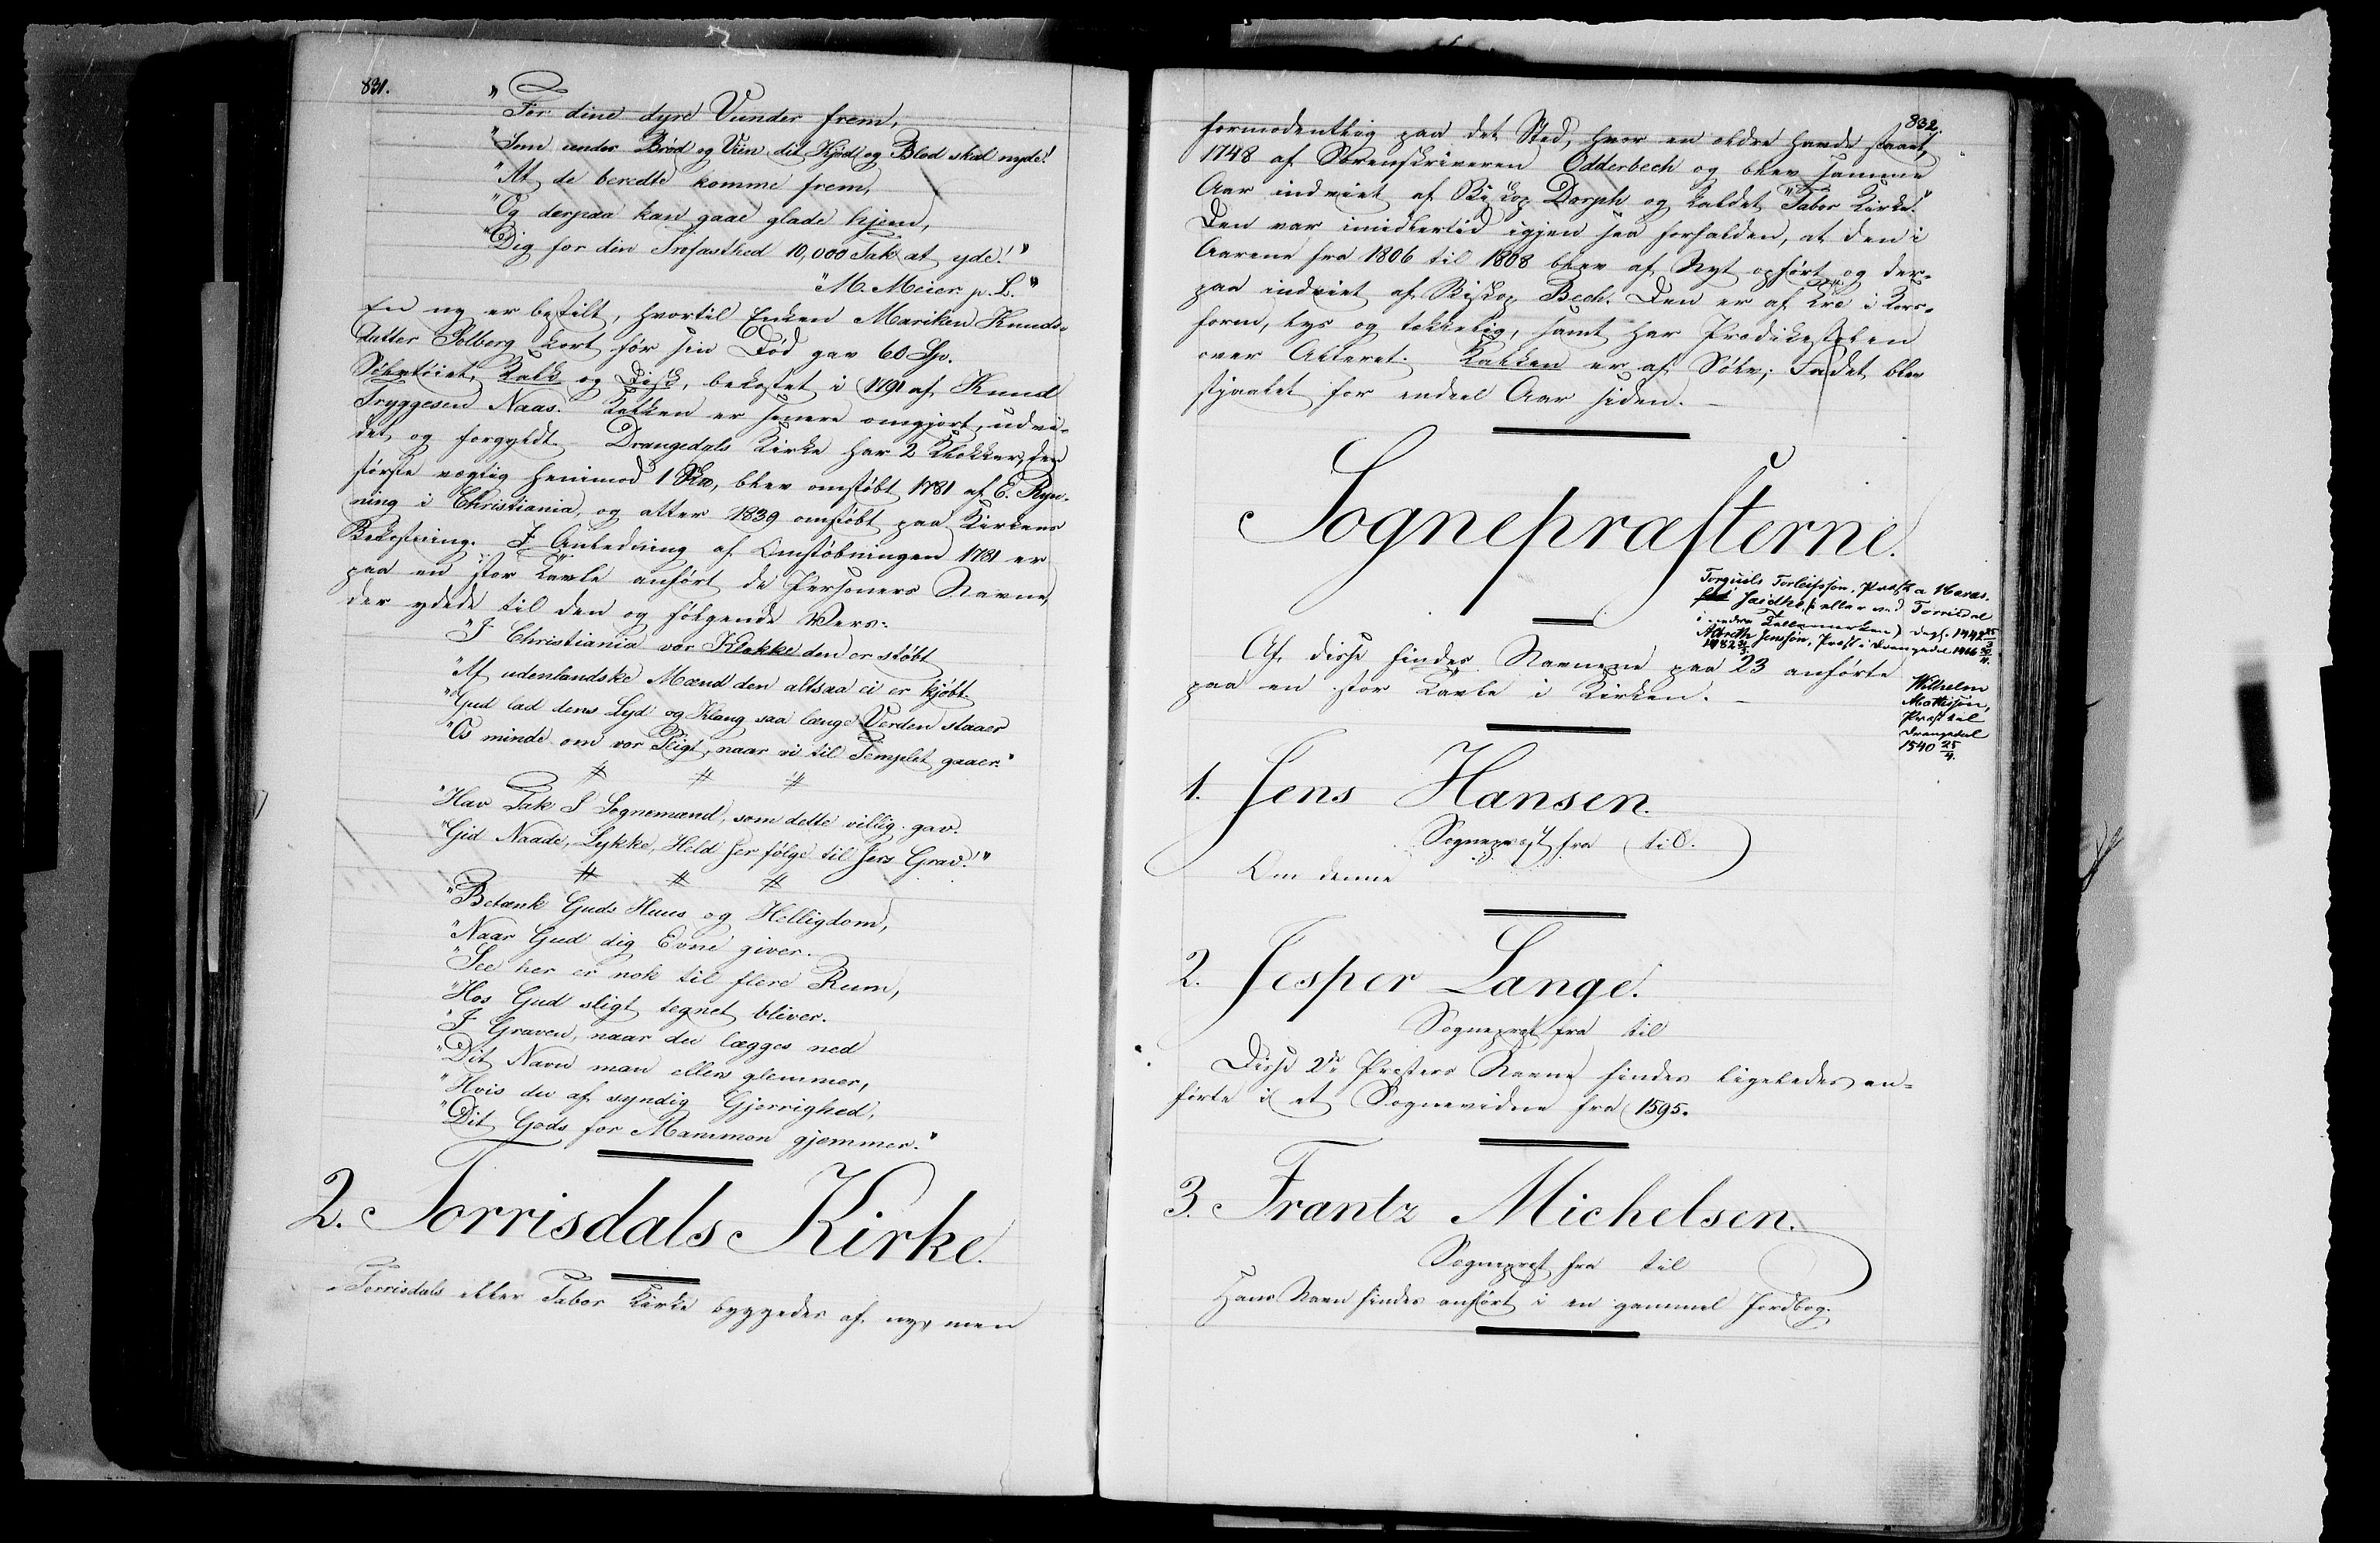 831.
"For dine dyre Vunder frem,
"Som under Brød og Viin dit Kjød og Blod skal nyde!
"At de beredte komme frem,
"Og derpaa kan gaae glade hjem,
"Dig for din Trofasthed 10,000 Tak at yde!"
"M. Meier. p. L."
En ny er bestilt, hvortil Enken Mariken Knuds-
datter Solberg kort før sin Død gav 60 Sp.
Sølvtøiet, Kalk og Disk, bekostet i 1791 af Knud
Tryggesen Naas. Kalken er senere omgjort, udvi-
det og forgyldt. Drangedals Kirke har 2 Klokker, den
største vægtig henimod 1 , blev omstøbt 1781 af E. Ryn-
ning i Christiania, og atter 1839 omstøbt paa Kirkens
Bekostning. I Anledning af Omstøbningen 1781 er
paa en stor Tavle anført de Personers Navne,
der ydede til den og følgende Vers:
"I Christiania vor Klokke den er støbt
"Af udenlandske Mænd den altsaa ei er kjøbt.
"Gud lad dens Lyd og Klang saa længe Verden staaer
"Os minde om vor Pligt, naar vi til Templet gaaer."
"Hav Tak I Sognemænd, som dette villig gav.
"Gid Naade, Lykke, Held Jer følge til Jers Grav!"
"Betænk Guds Huus og Helligdom,
"Naar Gud dig Evne giver.
"See her er nok til flere Rum,
"Hos Gud sligt tegnet bliver.
"I Graven, naar du lægges ned
"Dit Navn man ellers glemmer,
"Hvis du af syndig Gjerrighed,
"Dit Gods for Mammon gjemmer."
2. Torrisdals Kirke.
Torrisdals eller Tabor Kirke byggedes af ny, men
832.
formodentlig paa det Sted, hvor en ældre havde staaet,
1748 af Sorenskriveren Odderbech og blev samme
Aar indviet af Biskop Dorph og kaldet "Tabor Kirke."
Den var imidlertid igjen saa forfalden, at den i
Aarene fra 1806 til 1808 blev af Nyt opført og der-
paa indviet af Biskop Bech. Den er af Træ i Kors-
form, lys og tækkelig, samt har Prædikestolen
over Alteret. Kalken er af Sølv; Fadet blev
stjaalet for endeel Aar siden.
Sognepræsterne.
Torguils Torleifsson, Præst a
Saidhe, (eller ved Torrisdal
i nedre Tellemarken) 1442 25/3
Jensson, Præst i Drangedal 1466
1482
Af disse findes Navnene paa 23 anførte
paa en stor Tavle i Kirken.
Wilhelm
Mattisson,
Præst til
Drangedal
1540 25/4.
1. Jens Hansen.
Sognepræst fra til.
Om denne
2. Jesper Lange.
Sognepræst fra til
Disse 2de Præsters Navne findes ligeledes an-
førte i et Sognevidne fra 1595.
3. Frantz Michelsen.
Sognepræst fra til
Hans Navn findes anført i en gammel Jordbog.